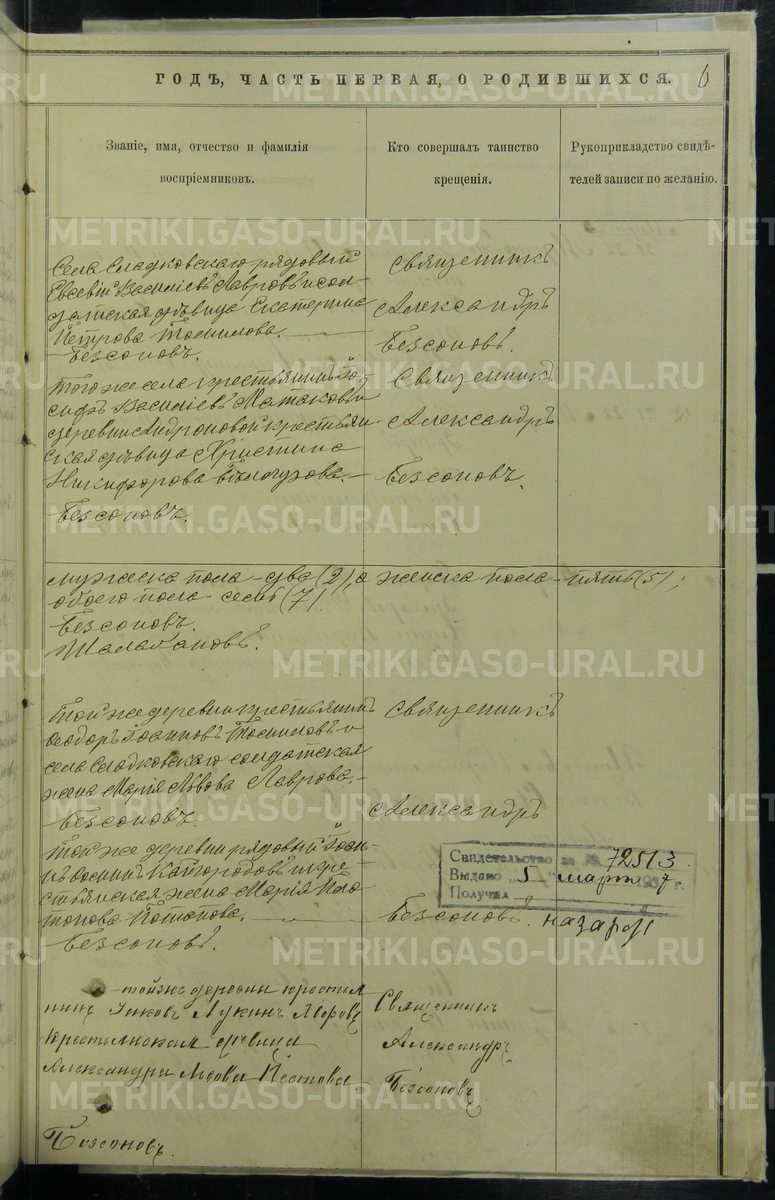 ГОДЪ, ЧАСТЬ ПЕРВАЯ, О РОДИВШИХСЯ. 6
Званіе, имя, отчество и фамилія
воспріемниковъ.
Кто совершалъ таинство
крещенія.
Рукоприкладство свидѣ-
телей записи по желанію.
Села Сладковскаго рядовый
Евсевій Василіевъ Лавровъ и сол-
датская дѣвица Екатерина
Петрова Томилова.
Безсоновъ.
Священникъ
Александръ
Безсоновъ.
Того же села крестьянинъ Іо-
сифъ Василіевъ и
деревни Андроновой крестьян-
ская дѣвица Христина
Никифорова
Безсоновъ.
Священникъ
Александръ
Безсоновъ.
мужеска пола - два (2), а женска пола - пять (5);
обоего пола - семь (7)
Безсоновъ.
Шалабановъ.
Той же деревни крестьянинъ
Ѳеодоръ Іоанновъ Томиловъ и
села Сладковскаго солдатская
жена Марія Львова Лаврова.
Безсоновъ.
Священникъ
Александръ
Безсоновъ.
Той же деревни рядовый Іоан-
нъ Кайгородовъ и кре-
стьянская жена Марія Пла-
тонова Потапова.
Безсоновъ.
Свидѣтельство за № 72513
Выдано „5" март 7 г.
Получил
тойже деревни крестья
нинъ Лукинъ
крестьянская дѣвица
Александра Львова Пестова
Безсоновъ.
Священникъ
Александръ
Безсоновъ
METRIKI.GASO-URAL.RU